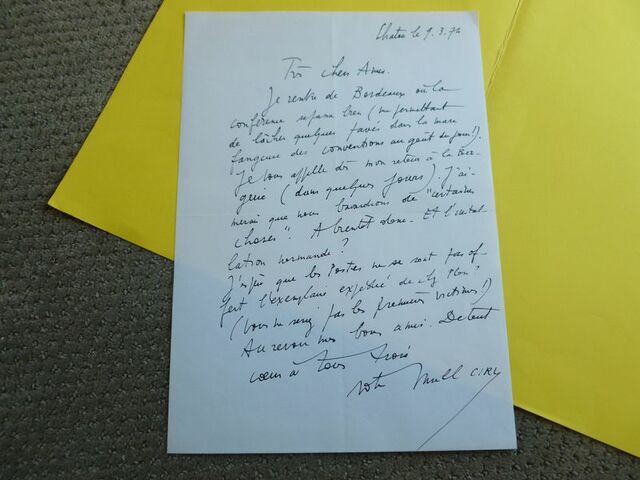 Chatou le 9.3.74
Très chers Amis.
Je rentre de Bordeaux où la
conférence se passa bien (me permettant
de lâcher quelques pavés dans la mare
fangeuse des conventions au goût du jour!).
Je vous appelle dès mon retour à la Ber-
gerie (dans quelques jours). J'ai-
merais que nous bavardions de "certaines
choses". A bientôt donc. Et l'instal-
lation normande?
J'espère que les Postes ne se sont pas of-
fert l'exemplaire expédié de chez Plon?
(Vous ne seriez pas les premières victimes!)
Au revoir mes bons amis. De tout
cœur à tous trois
votre CIRY